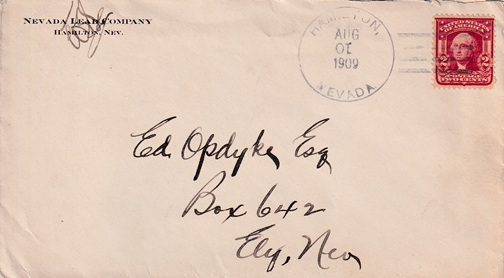 NEVADA LEAD COMPANY
HAMILTON, NEV.
HAMILTON,
AUG
01
1909
NEVADA
UNITED STATES
OF AMERICA
2 2
POSTAGE
TWO CENTS
Ed. Opdyke, Esq
Box 642
Ely, Nev